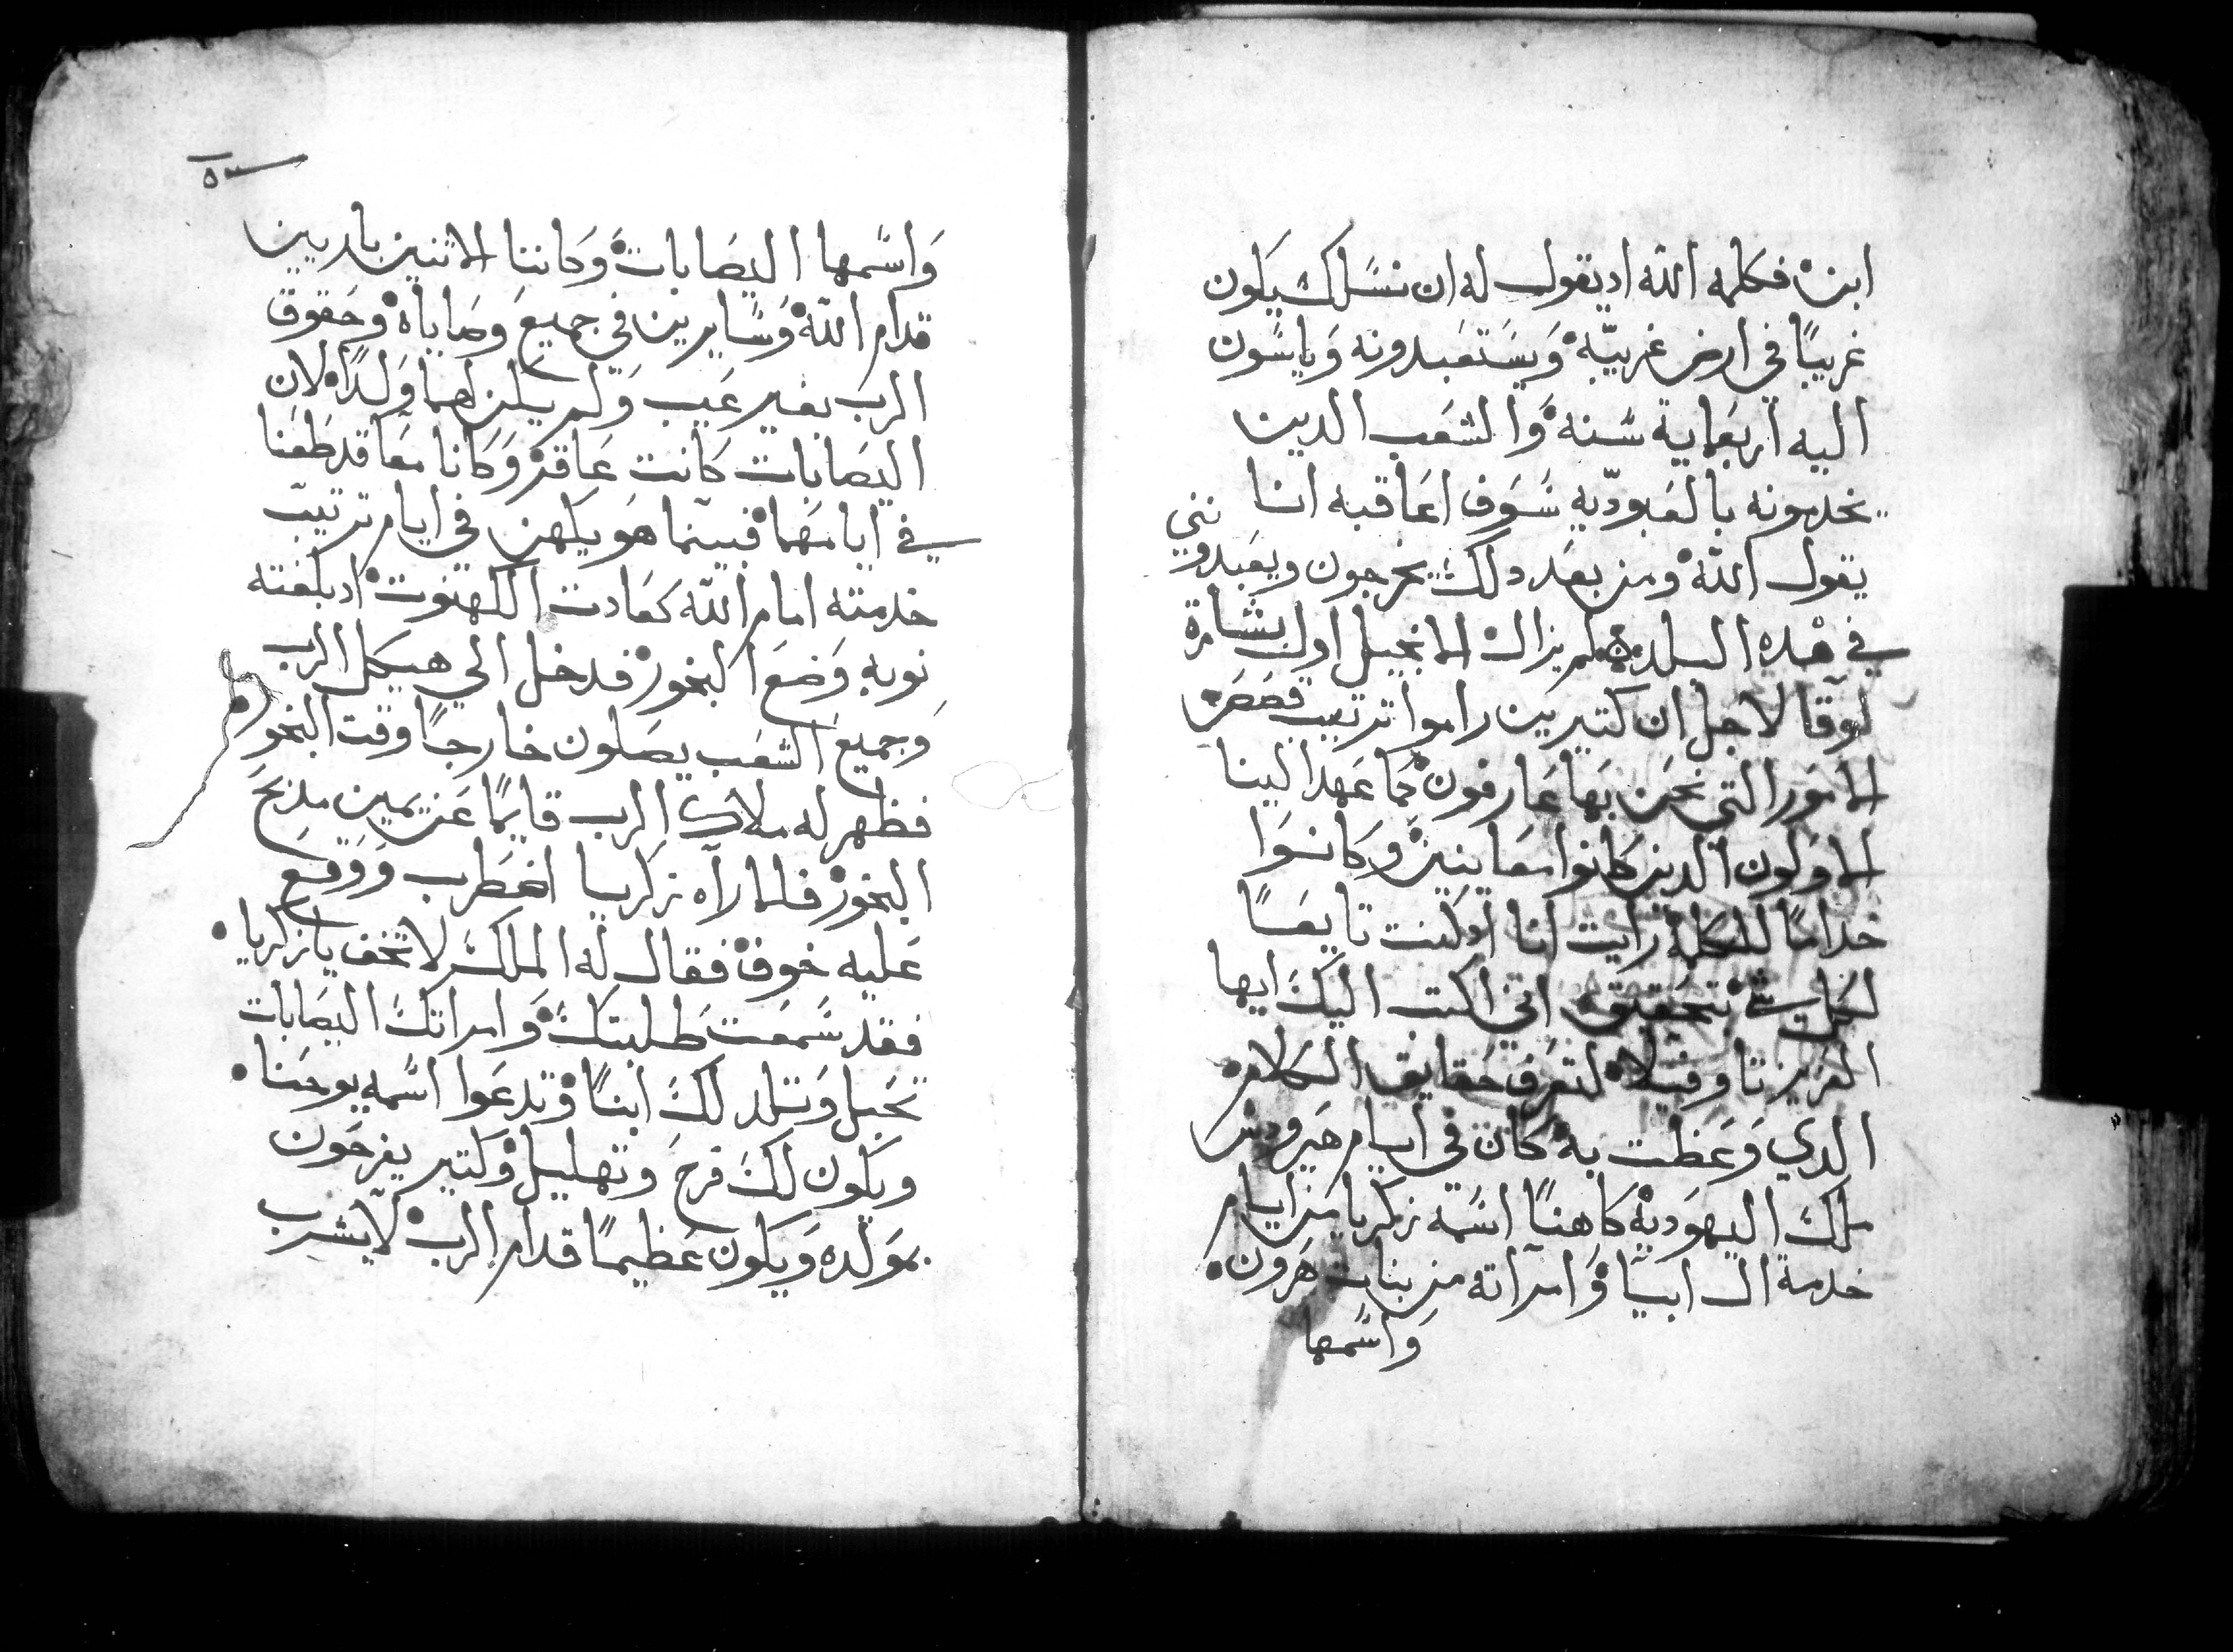 ابن فكلمه الله اد يقول له ان نسلك يكون
غريبًا في ارض غريبّه ويستعبدونه ويايسون
اليه اربعماية سنه والشعب الدين
يخدمونه بالعبودّيه سَوف اعاقبه انا
يقول الله ومن بعد دلك يخرجون ويعبدونني
في هده البلده لم يزال الانجيل اول بشارة
لوقا لاجل ان كتيرين راموا ترتيب قصص
الامور التي نحن بها عارفون كما عهد الينا
الاولون الدين كانوا معاينين وكانوا
خدامًا للكلمة رايت انا اد كنت تابعًا
لكل شي بتحقيق اني اكتب اليك ايها
العزيز تاوفيلا لتعرف حقايق الكلام
الدي وعظت به كان في ايام هيرودس
ملك اليهودية كاهنًا اسمه زكريا من ايام
خدمة ال ابيا وامراته من بنات هرون
واسمها
٥٣
واسمها اليصابات وكانتا الاتنين بارين
قدام الله وسايرين في جميع وصاياه وحقوق
الرب بغير عيب ولم يكن لهما ولدًا لان
اليصابات كانت عاقر وكانا معا قد طعنا
في ايامهما فبينما هو يكهن في ايام ترتيب
خدمته امام الله كعادت الكهنوت اد بلغته
نوبه وضع البخور فدخل الي هيكل الرب
وجميع الشعب يصلون خارجًا وقت البخور
فظهر له ملاك الرب قايمًا عن يمين مدبح
البخور فلما راه زكريا اضطرب ووقع
عليه خوف فقال له الملك لا تخف يا زكريا
فقد سمعت طلبتك وامراتك اليصابات
تحبل وتلد لك ابنًا وتدعوا اسمه يوحنا
ويكون لك فرح وتهليل وكتير يفرحون
بمولده ويكون عظيمًا قدام الرب لا يشرب